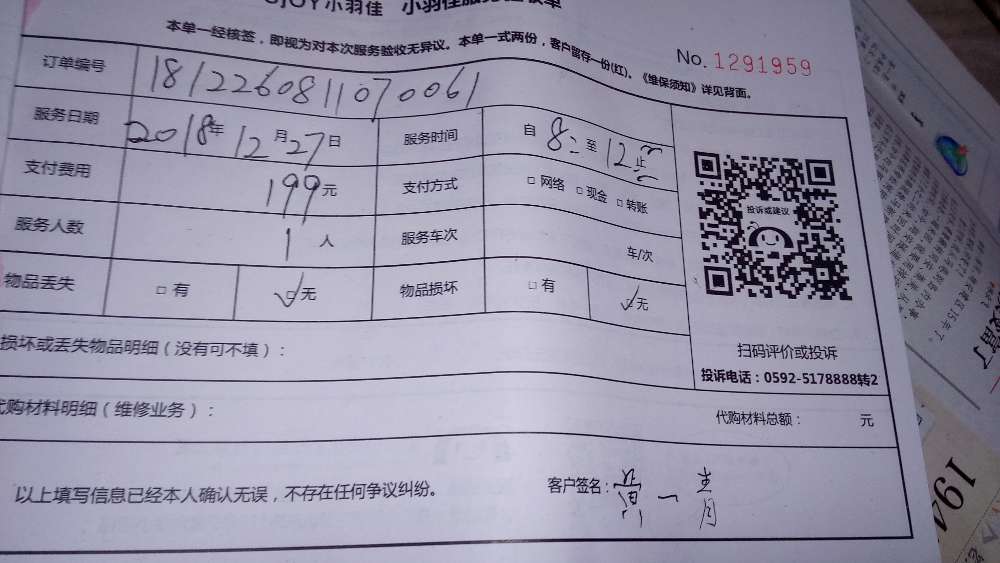 小羽佳 小羽佳服务验收单
本单一经核签，即视为对本次服务验收无异议。本单一式两份，客户留存一份(红)。《维保须知》详见背面。
No. 1291959
订单编号 1812260811070061
服务日期 2018年12月27日 服务时间 自 8: 至 12 止
支付费用 199元 支付方式 □ 网络 □ 现金 □ 转账
服务人数 1 人 服务车次 车/次
物品丢失 □ 有 ☑ 无 物品损坏 □ 有 ☑ 无
投诉或建议
扫码评价或投诉
投诉电话：0592-5178888转2
损坏或丢失物品明细（没有可不填）：
代购材料明细（维修业务）：
代购材料总额： 元
以上填写信息已经本人确认无误，不存在任何争议纠纷。
客户签名：
194